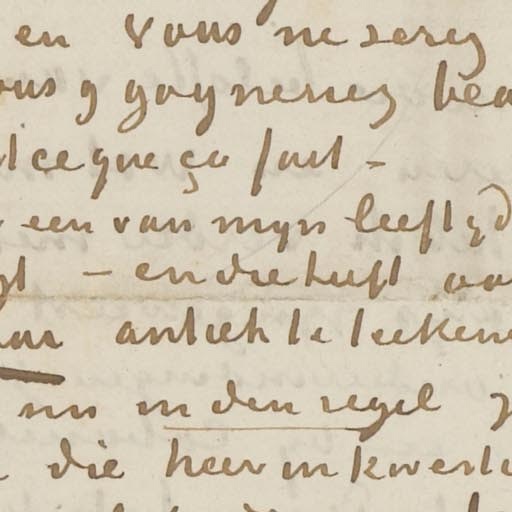 en vous ne serez
ous y gagnerez bea
ce que ça fait -
een van myn leeftyd
- en die heeft oo
antiek te teekene
nu in den regel
die heer in kwesti